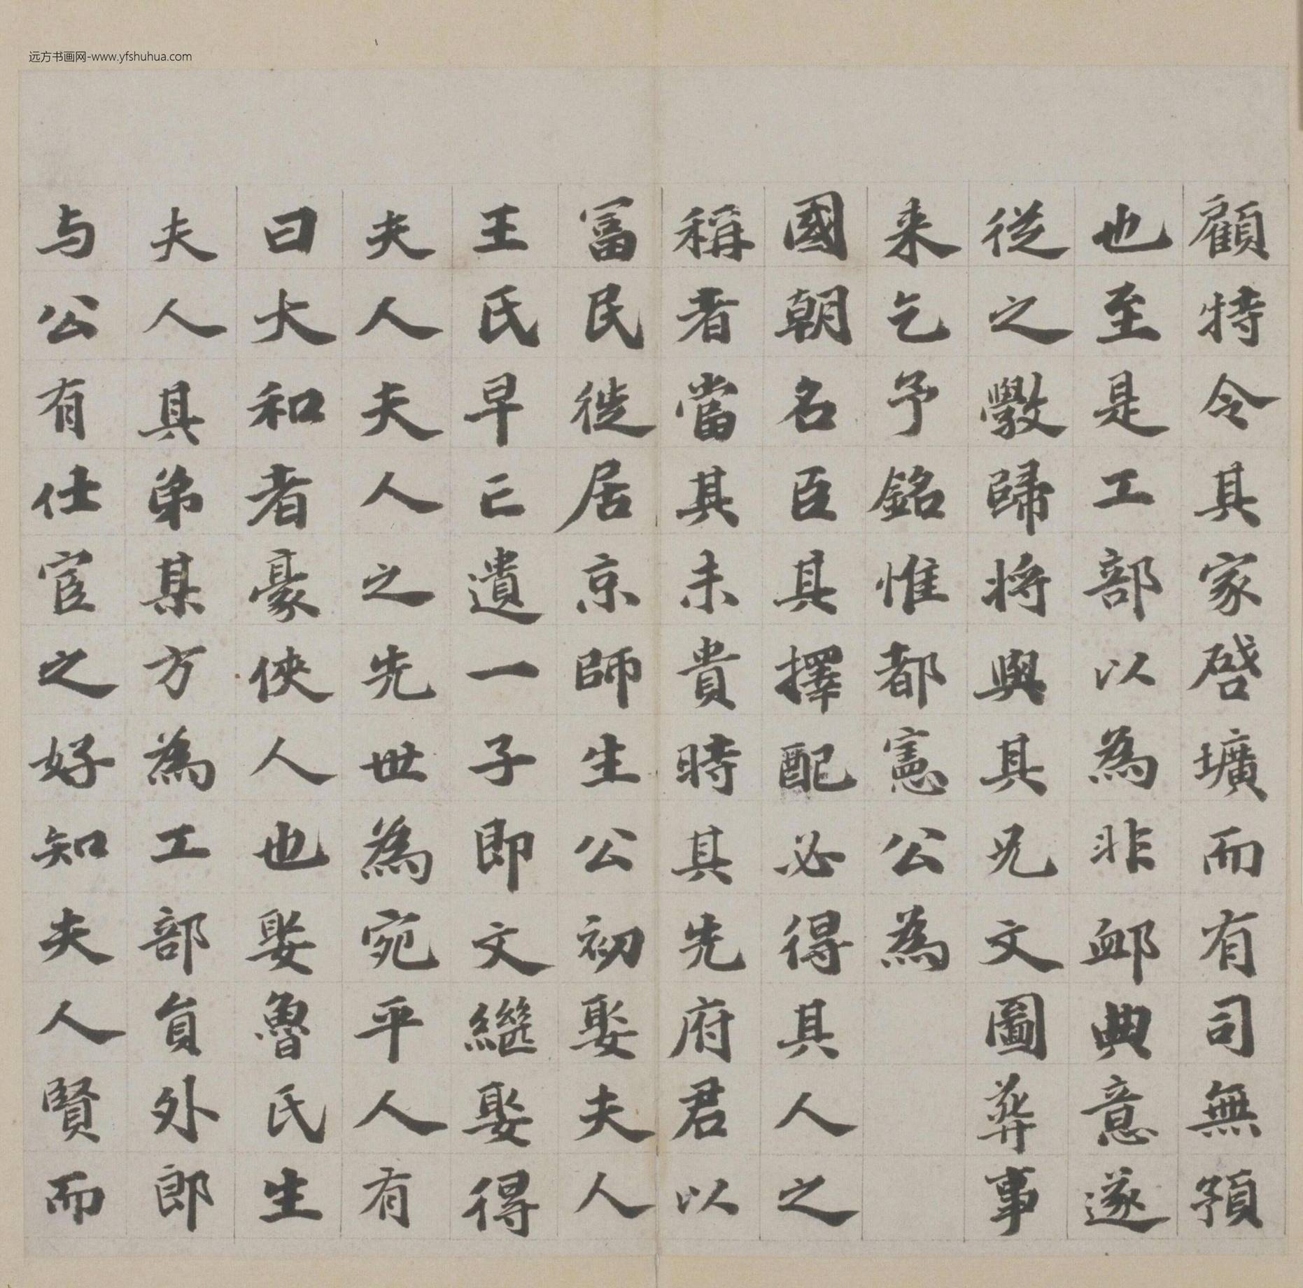 远方书画网-www.yfshuhua.com
顧特令其家啓壙而有司無預
也至是工部以為非邮典意遂
從之斅歸将與其兄文圖葬事
来乞予銘惟都憲公為
國朝名臣其擇配必得其人之
稱者當其未貴時其先府君以
冨民徙居京師生公初娶夫人
王氏早亡遺一子即文繼娶得
夫人夫人之先世為宛平人有
曰大和者豪俠人也娶魯氏生
夫人其弟某方為工部員外郎
与公有仕宦之好知夫人賢而